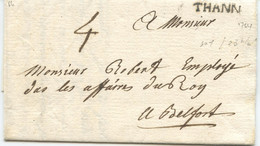 THANN
A Monsieur
4
Monsieur Robert Employé
das les affaires du Roy
A Belfort